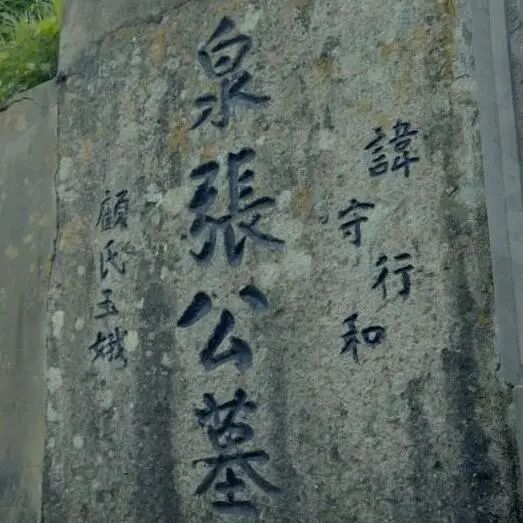 諱守行和
泉張公墓
顧氏玉娥